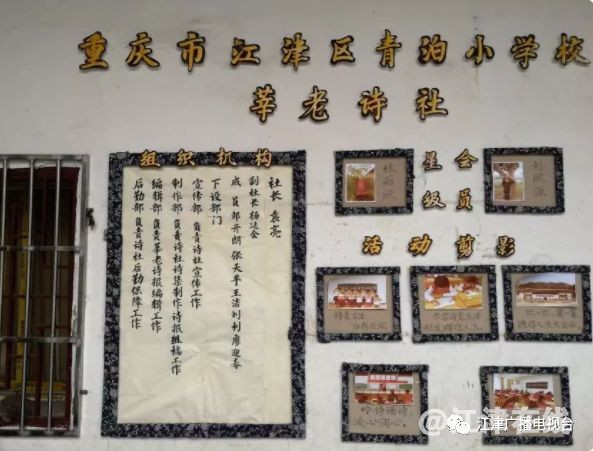 重庆市江津区青泊小学校
莘老诗社
组织机构
社长 袁亮
副社长 杨廷会
成员 郭开朗 张天平 王洁 刘利 廖迎春
下设部门
宣传部 负责诗社宣传工作
制作部 负责诗社诗集制作、诗报组稿工作
编辑部 负责莘老诗报编辑工作
后勤部 负责诗社后勤保障工作
星级
会员
活动剪影
吟诗诵诗，
沁心润心。
@江津在线
江津广播电视台